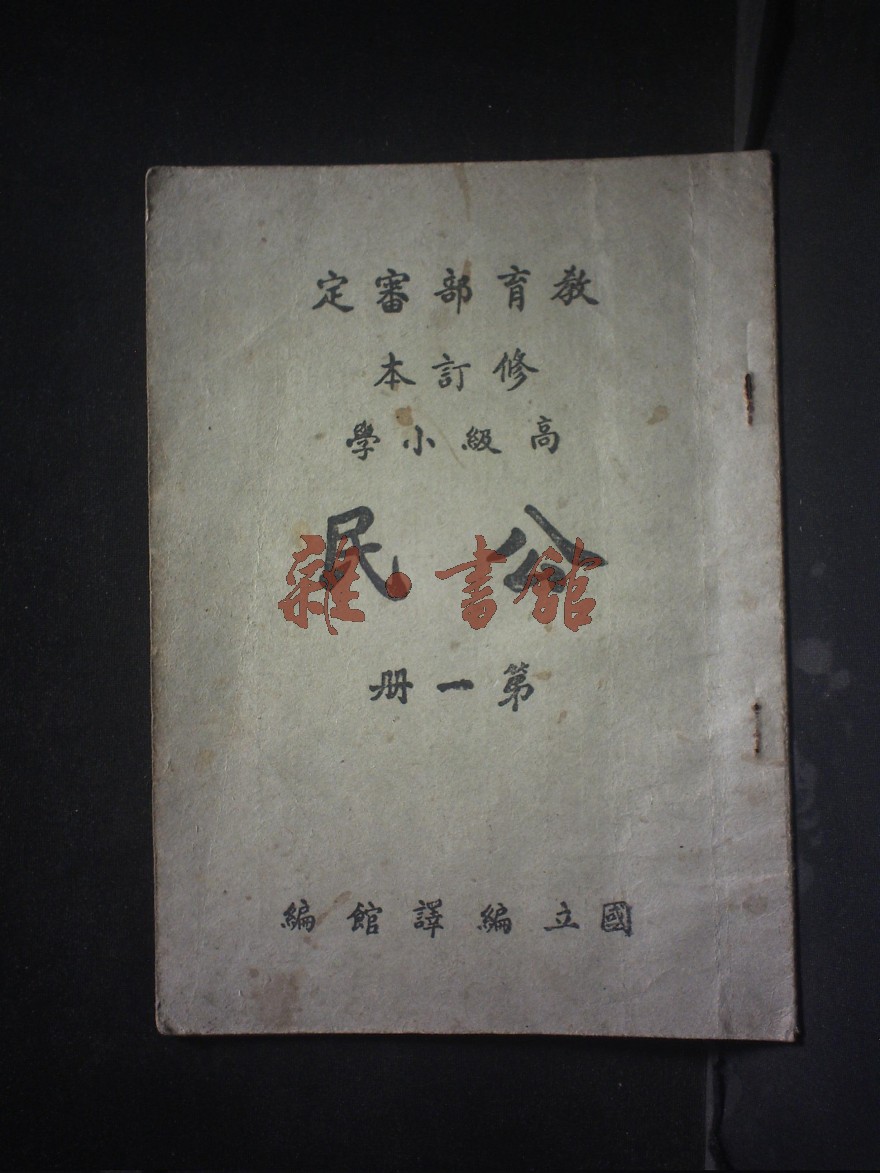 教育部審定
修訂本
高級小學
公民
雜·書館
第一册
國立編譯館編